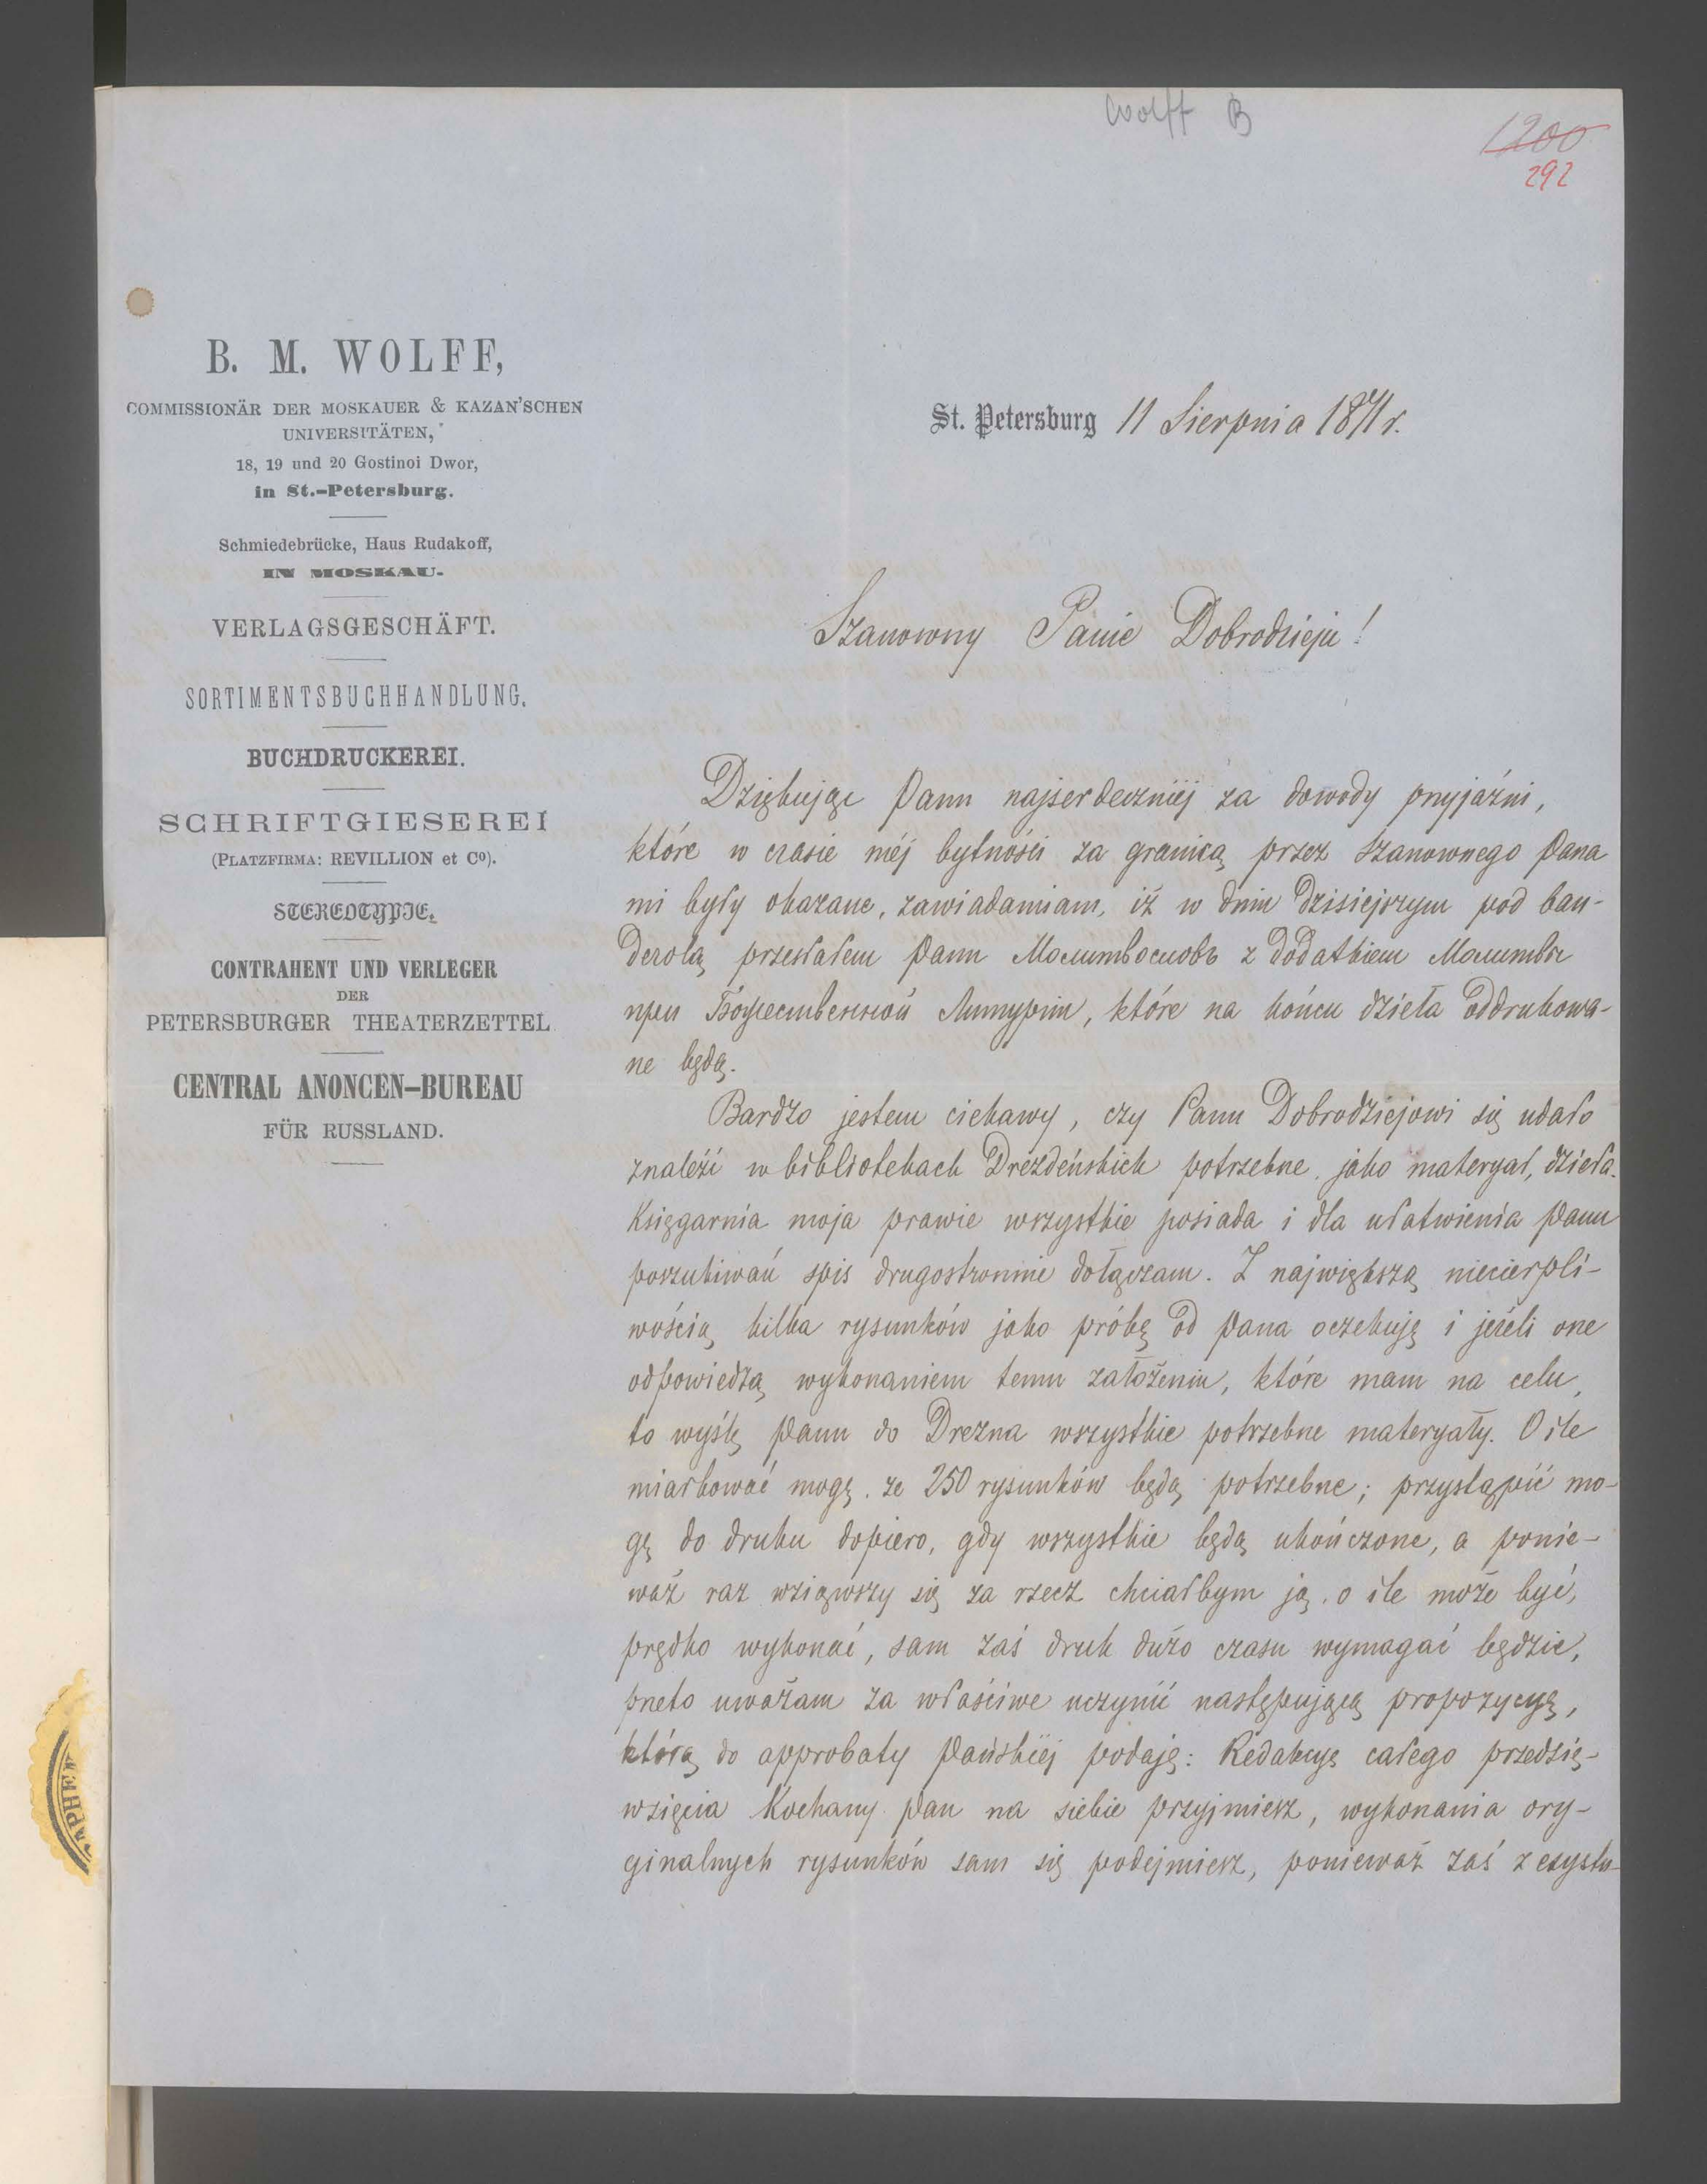 Wolff B
1200
292
B. M. WOLFF,
COMMISSIONÄR DER MOSKAUER & KAZAN'SCHEN
UNIVERSITÄTEN,
18, 19 und 20 Gostinoi Dwor,
in St.-Petersburg.
Schmiedebrücke, Haus Rudakoff,
IN MOSKAU.
VERLAGSGESCHÄFT.
SORTIMENTSBUCHHANDLUNG.
BUCHDRUCKEREI.
SCHRIFTGIESEREI
(PLATZFIRMA: REVILLION et Co).
STEREOTYPIE.
CONTRAHENT UND VERLEGER
DER
PETERSBURGER THEATERZETTEL
CENTRAL ANONCEN-BUREAU
FÜR RUSSLAND.
St. Petersburg 11 Sierpnia 1871 r.
Szanowny Panie Dobrodzieju!
Dziękując Panu najserdeczniéj za dowody przyjaźni,
które w czasie méj bytności za granicą przez Szanownego Pana
mi były okazane, zawiadamiam, iż w dniu dzisiejszym pod ban-
derolą przesłałem Panu Молитвословъ z dodatkiem Молитвы
при Божественной Литургіи, które na końcu dzieła oddrukowa-
ne będą.
Bardzo jestem ciekawy, czy Panu Dobrodziejowi się udało
znaleźć w bibliotekach Drezdeńskich potrzebne, jako materyał, dzieła.
Księgarnia moja prawie wszystkie posiada i dla ułatwienia Panu
poszukiwań spis drugostronnie dołączam. Z największą niecierpli-
wością kilka rysunków jako próbę od Pana oczekuję i jeżeli one
odpowiedzą wykonaniem temu założeniu, które mam na celu,
to wyślę Panu do Drezna wszystkie potrzebne materyały. O ile
miarkować mogę, ze 250 rysunków będą potrzebne; przystąpić mo-
gę do druku dopiero, gdy wszystkie będą ukończone, a ponie-
waż raz wziąwszy się za rzecz chciałbym ją, o ile może być,
prędko wykonać, sam zaś druk dużo czasu wymagać będzie,
przeto uważam za właściwe uczynić następującą propozycyę,
którą do approbaty Pańskiéj podaję: Redakcyę całego przedsię-
wzięcia Kochany Pan na siebie przyjmiesz, wykonania ory-
ginalnych rysunków sam się podejmiesz, ponieważ zaś z czystu-